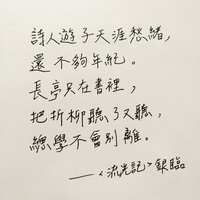 詩人遊子天涯愁緒，
還不夠年紀。
長亭只在書裡，
把折柳聽了又聽，
總學不會別離。
——〈流光記〉銀臨